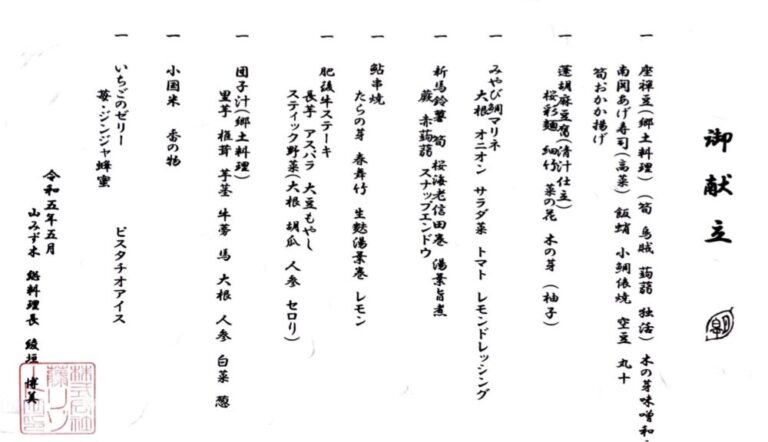 御献立
一 座禅豆(郷土料理) (筍 烏賊 蒟蒻 独活) 木の芽味噌和
南関あげ寿司(高菜) 飯蛸 小鯛俵焼 空豆 丸十
筍おかか揚げ
一 蓮胡麻豆腐(清汁仕立)
桜彩麺 細竹 菜の花 木の芽 (柚子)
一 みやび鯛マリネ
大根 オニオン サラダ菜 トマト レモンドレッシング
一 新馬鈴薯 筍 桜海老信田巻 湯葉旨煮
蕨 赤蒟蒻 スナップエンドウ
一 鮎串焼
たらの芽 春舞竹 生麩湯葉巻 レモン
一 肥後牛ステーキ
長芋 アスパラ 大豆もやし
スティック野菜(大根 胡瓜 人参 セロリ)
一 団子汁(郷土料理)
里芋 椎茸 芋茎 牛蒡 馬 大根 人参 白菜 葱
一 小国米 香の物
一 いちごのゼリー ピスタチオアイス
苺・ジンジャ蜂蜜
令和五年五月
山みず木 総料理長 綾垣 博美
株式会社